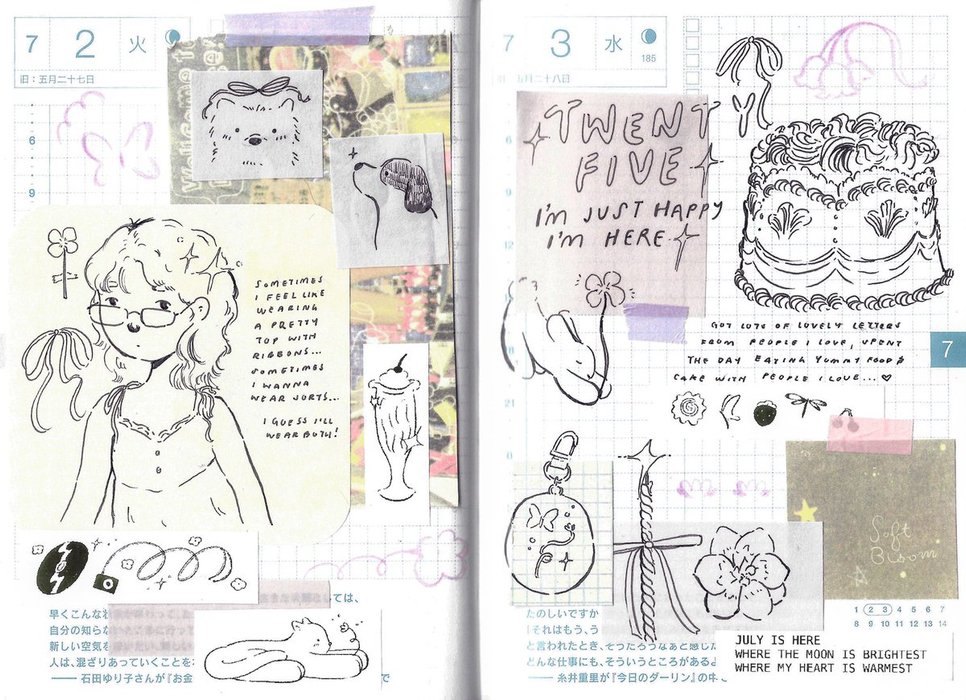 7 2 火
旧：五月二十七日
6
9
SOMETIMES
I FEEL LIKE
WEARING
A PRETTY
TOP WITH
RIBBONS...
SOMETIMES
I WANNA
WEAR JORTS...
I GUESS I'LL
WEAR BOTH!
早くこんな
自分の知らな
新しい空気を
人は、混ざりあっていくことを
としては、
―― 石田ゆり子さんが『お金
で
7 3 水
185
五月二十八日
TWENTY
FIVE
I'M JUST HAPPY
I'M HERE
GOT LOTS OF LOVELY LETTERS
FROM PEOPLE I LOVE, SPENT
THE DAY EATING YUMMY FOOD &
CAKE WITH PEOPLE I LOVE... ♡
7
21
Soft
Bloom
1 2 3 4 5 6 7
8 9 10 11 12 13 14
たのしいですか
「それはもう、う
と言われたとき、そうだろうなあと感じた
どんな仕事にも、そういうところがあるよ
―― 糸井重里が『今日のダーリン』の中
JULY IS HERE
WHERE THE MOON IS BRIGHTEST
WHERE MY HEART IS WARMEST